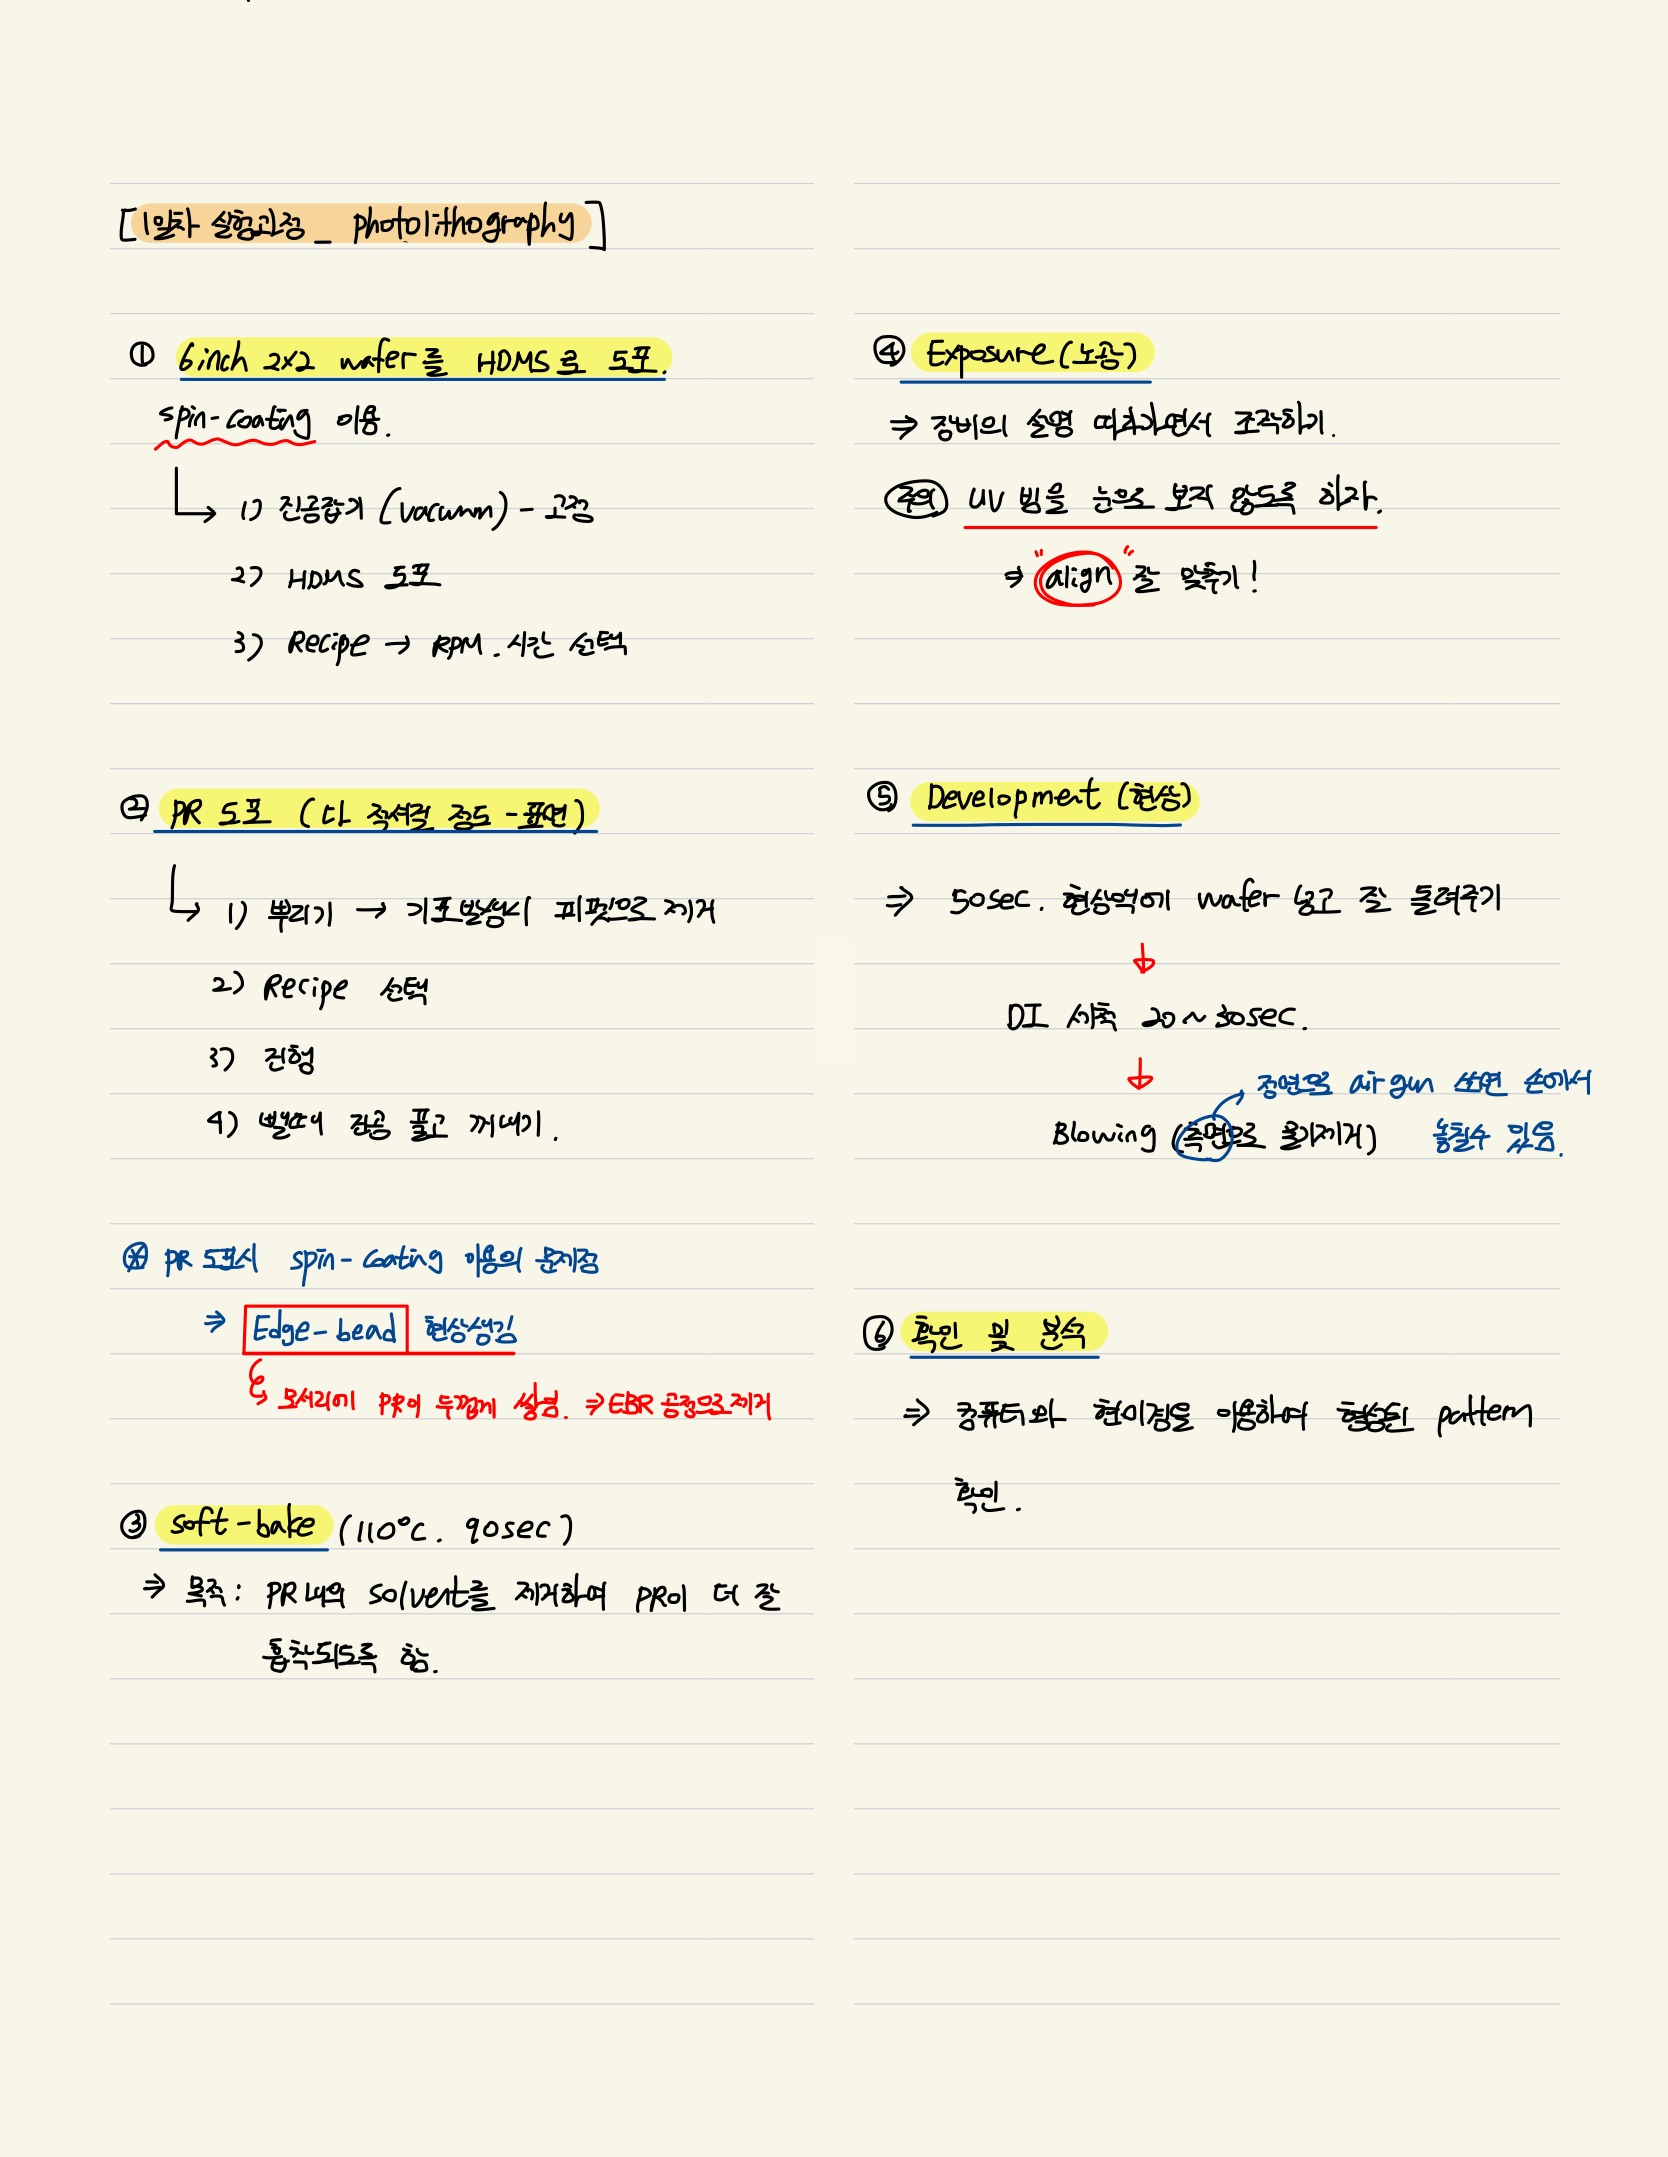 [1일차 실험과정_ photolithography]
① 6inch 2x2 wafer를 HDMS로 도포.
spin-coating 이용.
1) 진공잡기 (vacuum) - 고정
2) HDMS 도포
3) Recipe → RPM. 시간 선택
② PR 도포 (다 적셔질 정도 - 표면)
1) 뿌리기 → 기포발생시 피펫으로 제거
2) Recipe 선택
3) 진행
4) 뺄때 진공 풀고 꺼내기.
※ PR 도포시 spin-coating 이용의 문제점
⇒ Edge-bead 현상생김
↳ 모서리에 PR이 두껍게 쌓임. ⇒ EBR 공정으로 제거
③ soft-bake (110°C. 90sec)
⇒ 목적: PR내의 solvent를 제거하여 PR이 더 잘
흡착되도록 함.
④ Exposure(노광)
⇒ 장비의 설명 따라가면서 조작하기.
주의 UV 빔을 눈으로 보지 않도록 하자.
⇒ "align" 잘 맞추기!
⑤ Development (현상)
⇒ 50sec. 현상액에 wafer 넣고 잘 돌려주기
↓
DI 세척 20~30sec.
↓
정면으로 air gun 쏘면 손에서
Blowing (측면으로 물기제거) 놓칠수 있음.
⑥ 확인 및 분석
⇒ 컴퓨터와 현미경을 이용하여 형성된 pattern
확인.